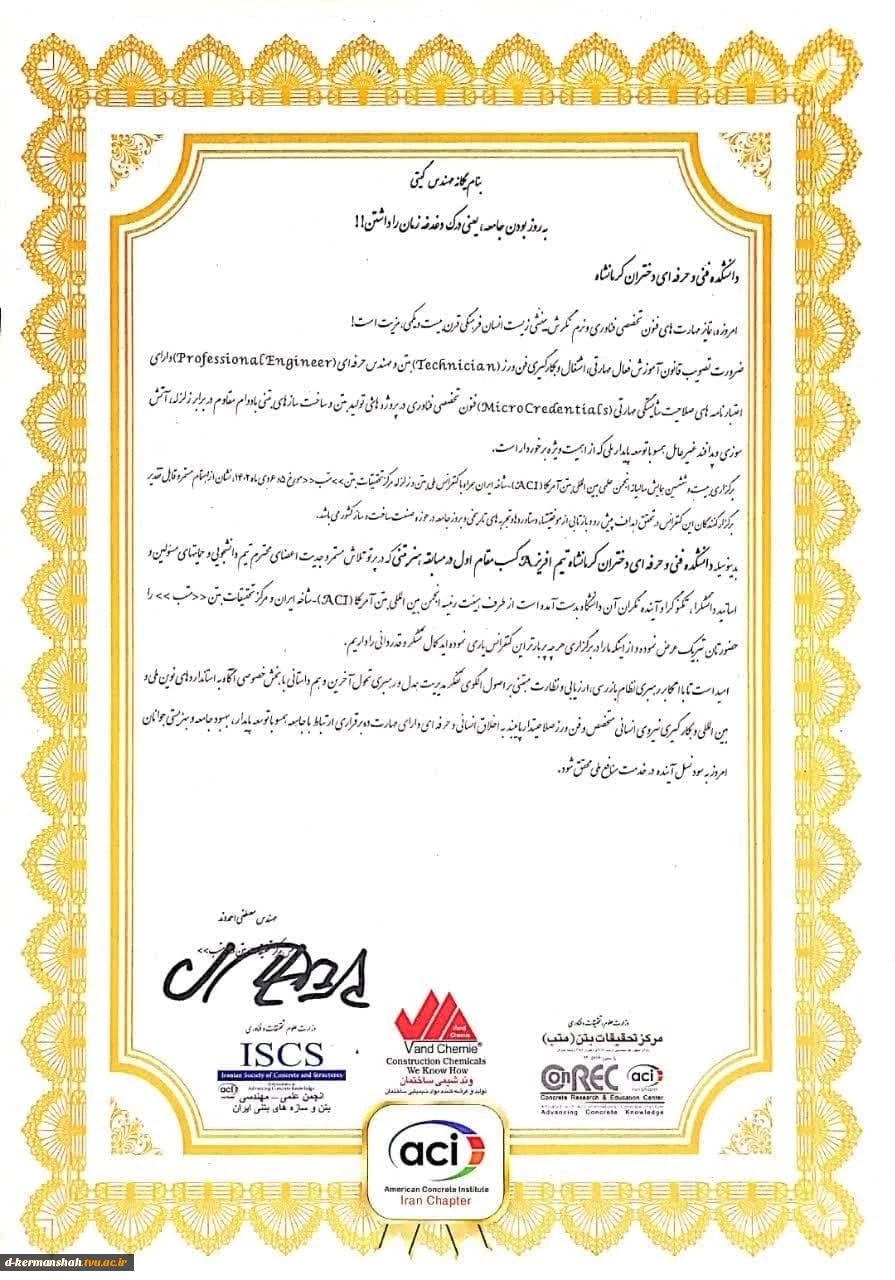 بنام یگانه مهندس گیتی
به روز بودن جامعه، یعنی درک دغدغه زمان را داشتن!!
دانشکده فنی و حرفه ای دختران کرمانشاه
امروزه، نیاز مهارت های فنون تخصصی فناوری و نرم نگرش بینشی زیست انسان فرهنگی قرن بیست و یکمی، مزیت است!
ضرورت تصویب قانون آموزش فعال مهارتی، اشتغال و بکارگیری فن ورز (Technician) بتن و مهندس حرفه ای (Professional Engineer) دارای
اعتبارنامه های صلاحیت شایستگی مهارتی (MicroCredentials) فنون تخصصی فناوری در پروژه های تولید بتن و ساخت سازهای بتنی بادوام مقاوم در برابر زلزله، آتش
سوزی و پدافند غیرعامل همسو با توسعه پایدار ملی که از اهمیت ویژه برخوردار است.
برگزاری بیست و ششمین همایش سالیانه انجمن علمی بین المللی بتن آمریکا (ACI)-شاخه ایران همراه با کنفرانس ملی بتن و زلزله مرکز تحقیقات بتن <<متب>> مورخ ۵و۶ دی ماه ۱۴۰۲، نشان از اهتمام مستمر و قابل تقدیر
برگزارکنندگان این کنفرانس در تحقق اهداف پیش رو و بازتابی از موفقیتها، دستاوردها و تجربه های تاریخی و بروز جامعه در حوزه صنعت ساخت و ساز کشور می باشد.
بدینوسیله دانشکده فنی و حرفه ای دختران کرمانشاه تیم افریز A کسب مقام اول در مسابقه هنر بتنی که در پرتو تلاش مستمر و جدیت اعضای محترم تیم دانشجویی و حمایتهای مسئولین و
اساتید دانشگرا، تکنوگرا و آینده نگران آن دانشگاه بدست آمده است از طرف هیئت رئیسه انجمن بین المللی بتن آمریکا (ACI)-شاخه ایران و مرکز تحقیقات بتن <<متب>> را
حضورتان تبریک عرض نموده و از اینکه ما را در برگزاری هرچه پربارتر این کنفرانس یاری نموده اید کمال تشکر و قدردانی را داریم.
امید است تا با ابتکار رهبری نظام بازرسی، ارزیابی و نظارت مبتنی بر اصول الگوی تفکر مدیریت بدل و رهبری تحول آخرین و هم داستانی با بخش خصوصی آگاه به استانداردهای نوین ملی و
بین المللی و بکارگیری نیروی انسانی متخصص و فن ورز صلاحیتدار پایبند به اخلاق انسانی و حرفه ای دارای مهارت ده برقراری ارتباط با جامعه همسو با توسعه پایدار، بهبود جامعه و بهزیستی جوانان
امروز به سود نسل آینده در خدمت منافع ملی محقق شود.
مهندس مصطفی احمدوند
وزارت علوم، تحقیقات و فناوری
ISCS
Iranian Society of Concrete and Structures
aci
Advancing Concrete Knowledge
انجمن علمی - مهندسی
بتن و سازه های بتنی ایران
Vand Chemie
Vand Chemie®
Construction Chemicals
We Know How
وند شیمی ساختمان
تولید و عرضه کننده مواد شیمیایی ساختمان
وزارت علوم، تحقیقات و فناوری
مرکز تحقیقات بتن (متب)
ConREC aci
Concrete Research & Education Center
Advancing Concrete Knowledge
aci
American Concrete Institute
Iran Chapter
d-kermanshah.tvu.ac.ir